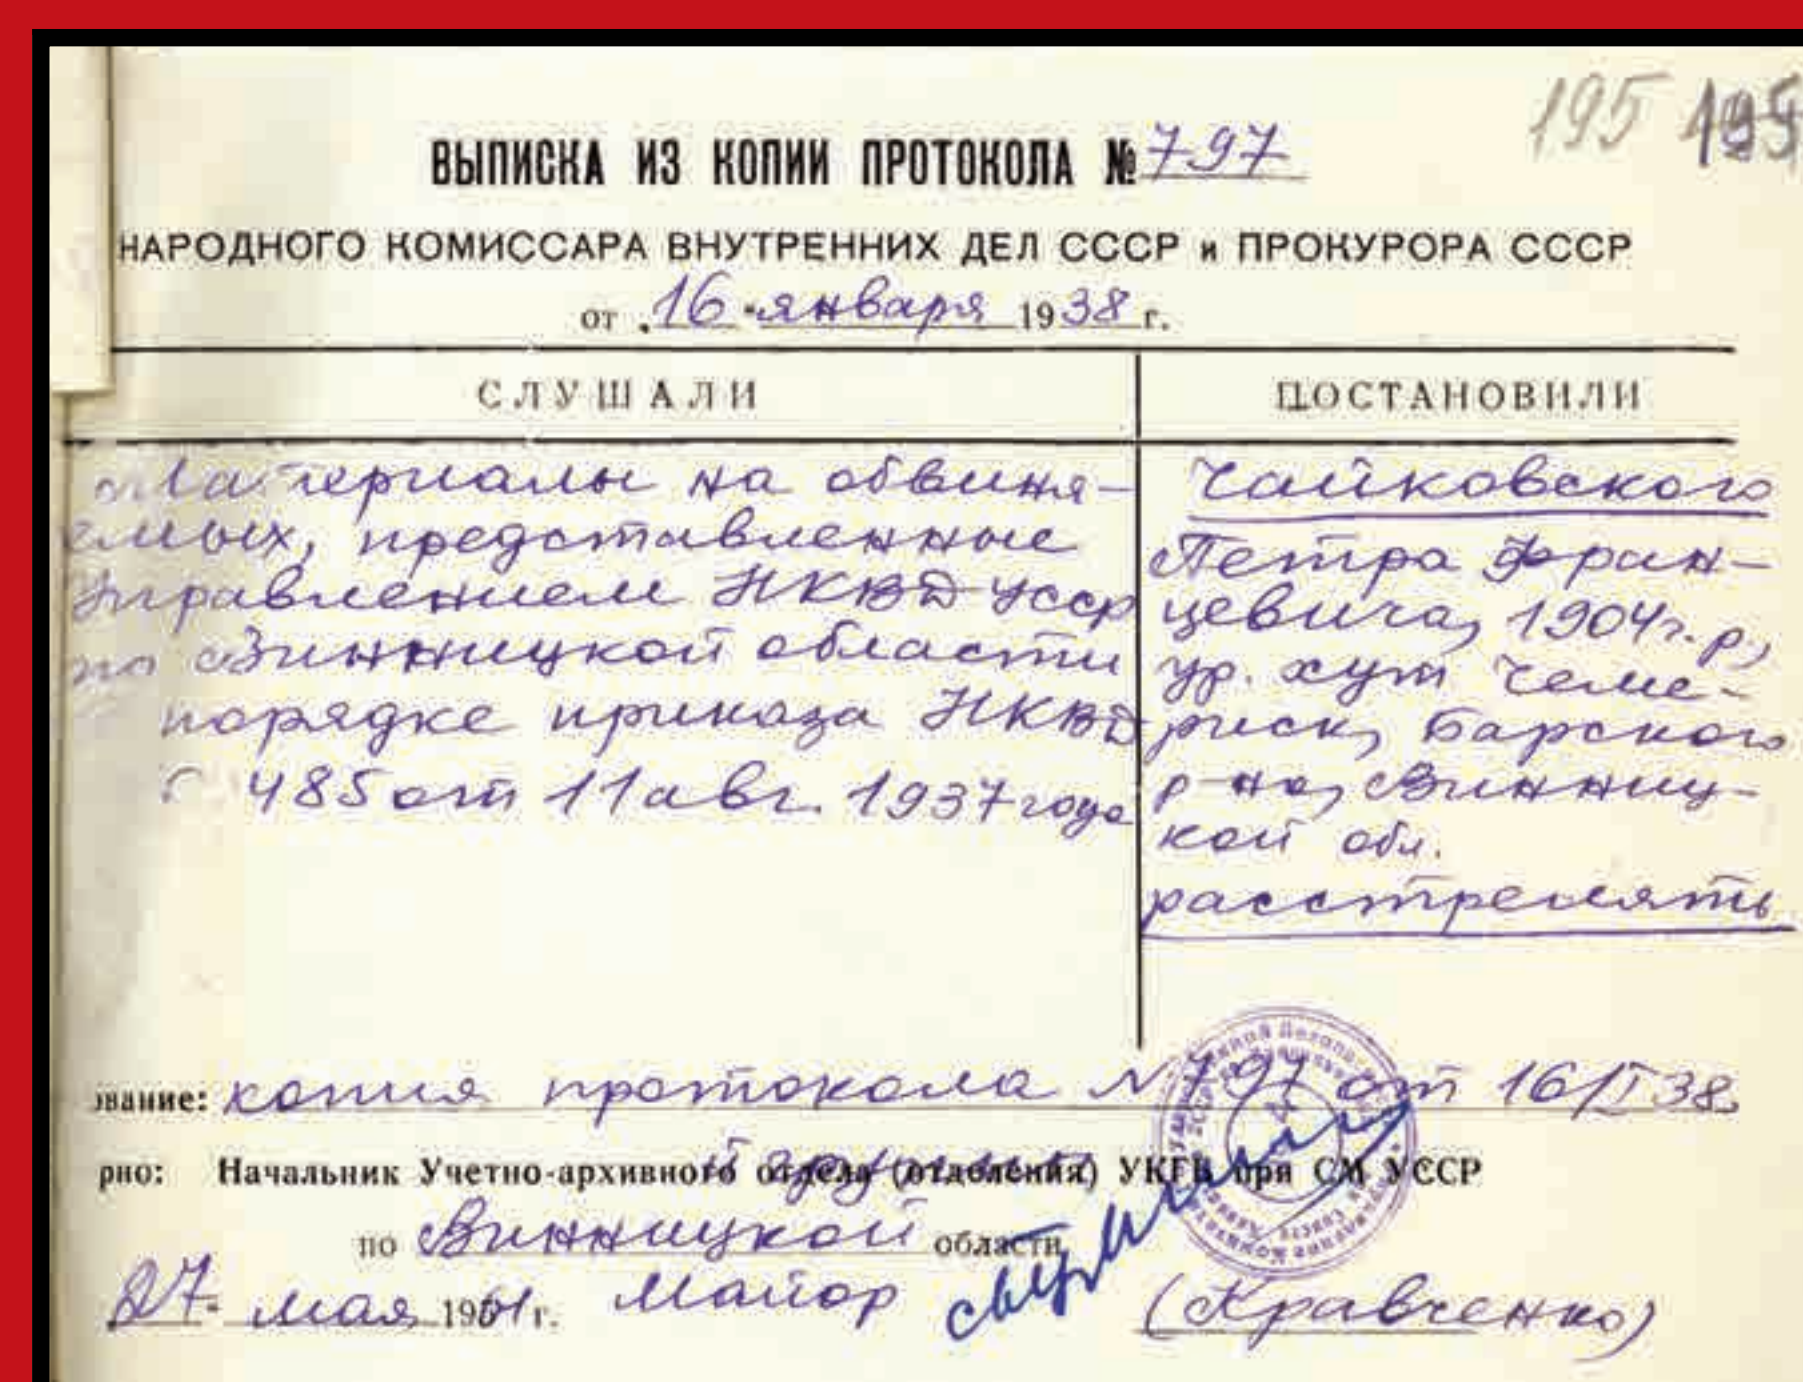 195 195
ВЫПИСКА ИЗ КОПИИ ПРОТОКОЛА № 797
НАРОДНОГО КОМИССАРА ВНУТРЕННИХ ДЕЛ СССР и ПРОКУРОРА СССР
от „16" января 1938 г.
СЛУШАЛИ
Материалы на обвиня-
емых, представленные
Управлением НКВД УССР
по Винницкой области
порядке приказа НКВД
485 от 11 авг. 1937 года
ПОСТАНОВИЛИ
Чайковского
Петра Фран-
цевича, 1904 г.р.,
ур. хут Чеме-
риск, Барского
р-на, Винниц-
кой обл.
расстрелять
ование: копия протокола N 797 от 16/I 38.
рно: Начальник Учетно-архивного отдела (отделения) УКГБ при СМ УССР
по Винницкой области
27 мая 1961 г. Майор (Кравченко)